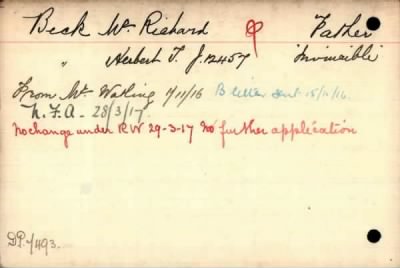 Beck Mr. Richard Father
" Herbert T. J. 12457 Invincible
From Mr Watling 1/11/16 B letter sent 15/11/16.
N.F.A. 28/3/17.
No change under RW 29-3-17 No further application
DP/493.